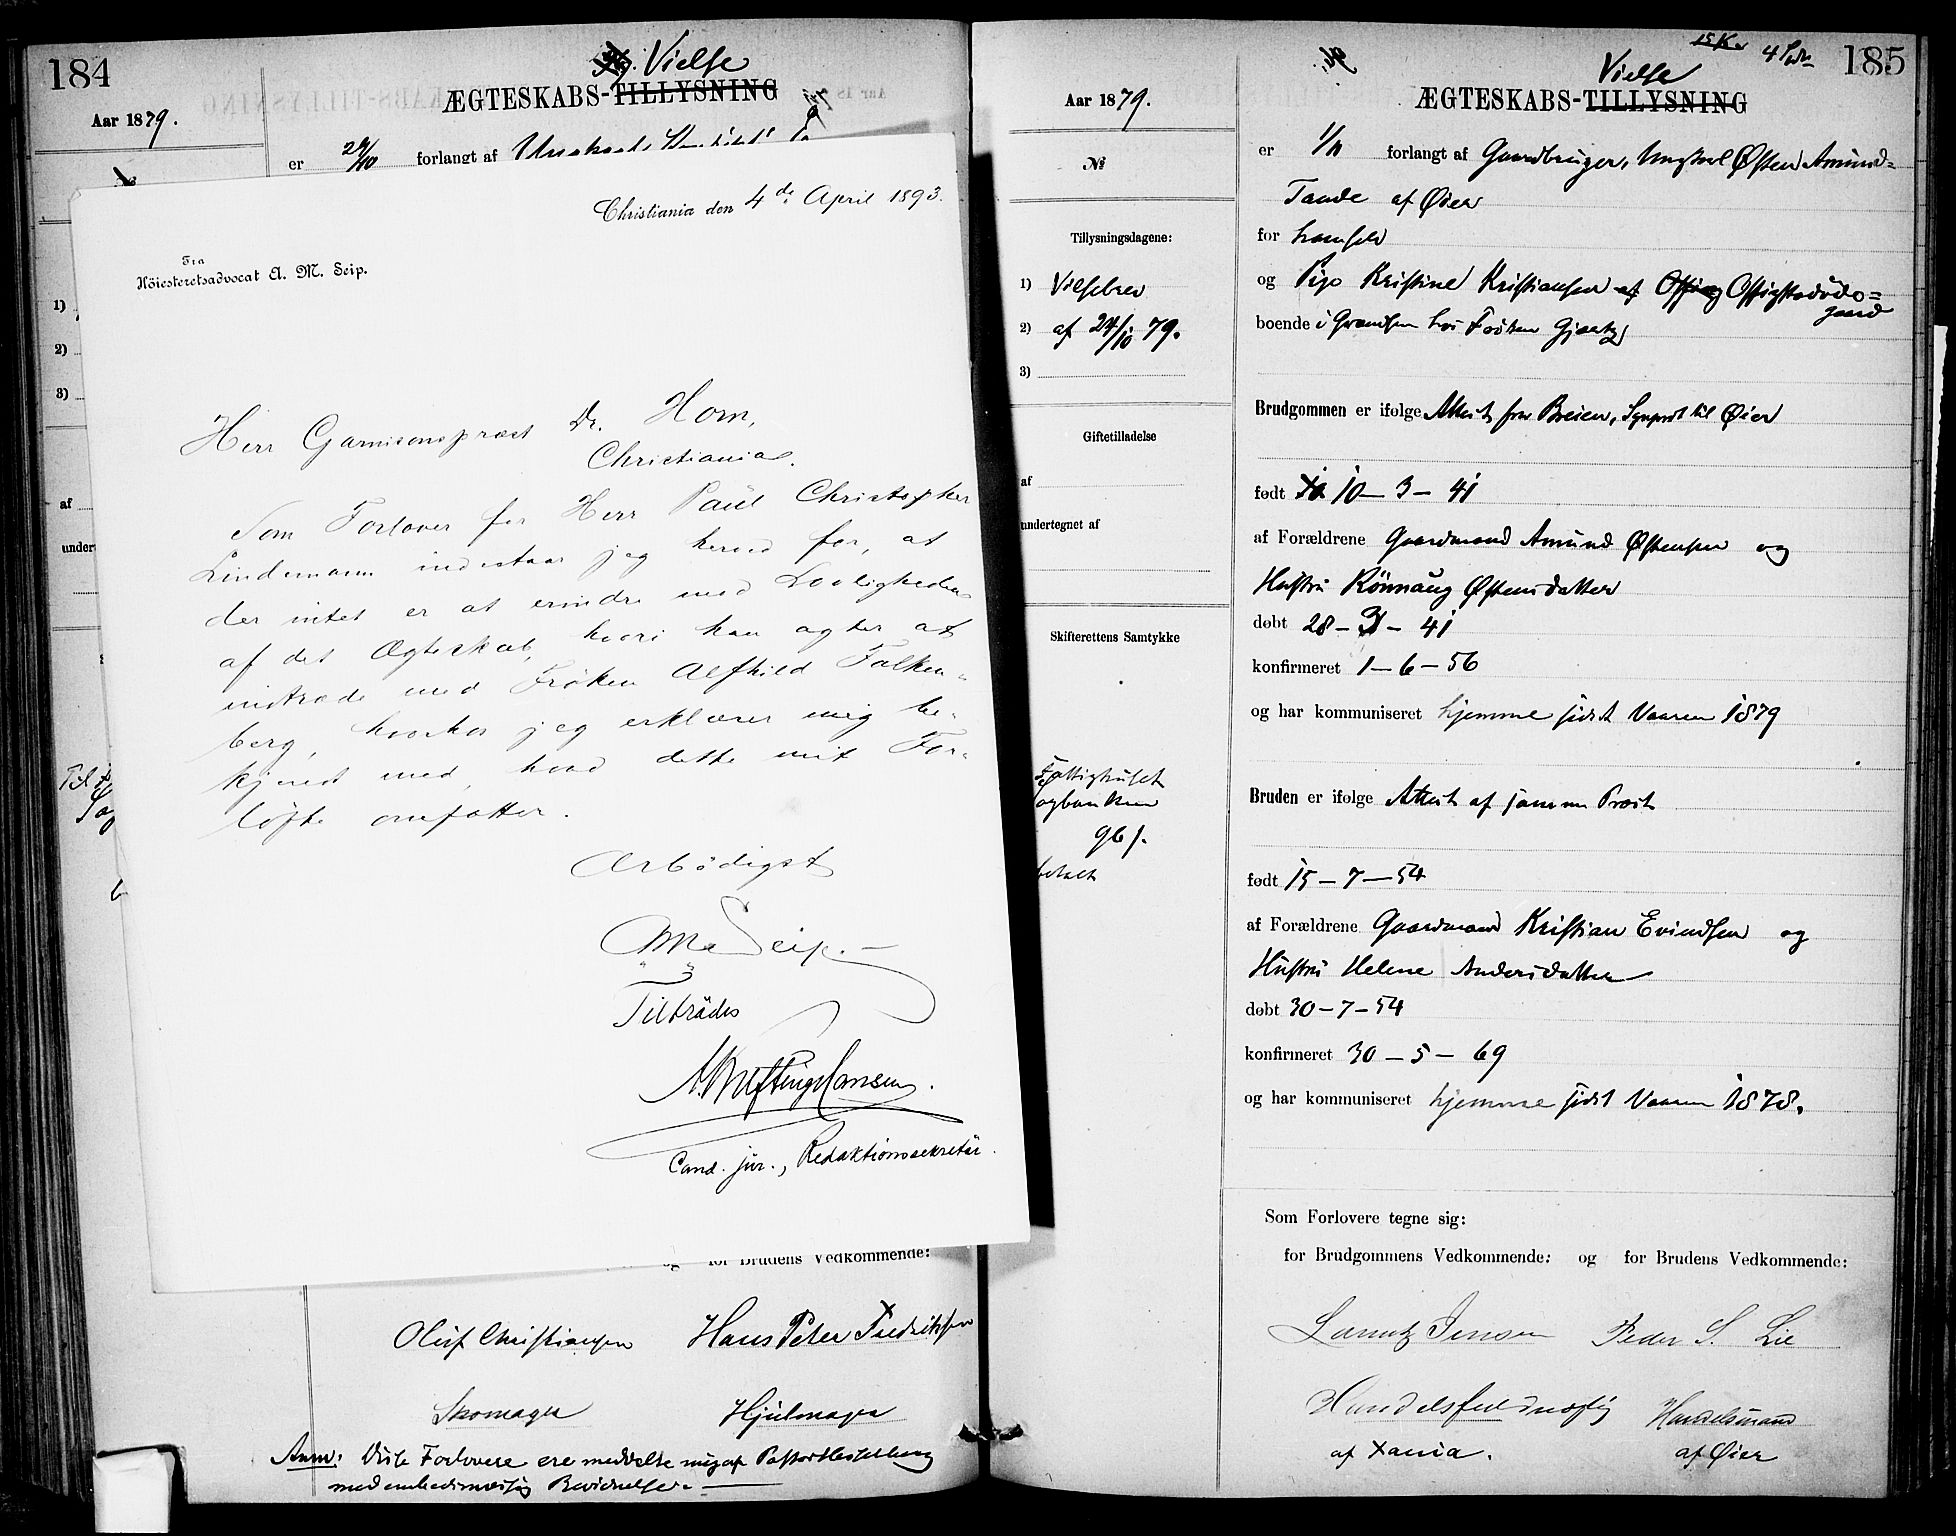 184
Vielse
ÆGTESKABS-TILLYSNING
Aar 1879.
er 29/10 forlangt af
1)
2)
3)
af
Christiania den 4de April 1893.
Fra
Höiesteretsadvocat A. M. Seip.
Herr Garnisonspræst Dr. Horn,
Christiania.
Som Forlover for Herr Paul Christopher
Lindemann indestaar jeg herved for, at
der intet er at erindre mod Lovligheden
af det Ægteskab, hvori han agter at
indtræde med Frøken Alfhild Falken-
berg, hvorhos jeg erklærer mig be-
kjendt med, hvad dette mit For-
løfte omfatter.
Ærbödigst
A M Seip.
Tiltrædes
Hansen.
Cand. jur., Redaktionssekretær.
og for Brudens Vedkommende:
Oluf Christiansen Hans Peter Fredriksen
Skomager Hjulmager
Anm: Disse Forlovere ere meddelte mig af Pastor Hesselberg
med embedsmæssig Bevidnelse.
15 Kr 4 185
Vielse
Aar 1879. ÆGTESKABS-TILLYSNING
№ er 1/11 forlangt af Gaardbruger, Ungkarl Østen Amund-
Tande af Øier
Tillysningsdagene: for ham selv
1) Vielsebrev og Pige Kristine Kristiansen af
2) af 24/10 79. boende i Grændsen hos Frøken
3)
Brudgommen er ifølge Attest fra Breien, Sgnprst til Øier
Giftetilladelse
af født 10 - 3 - 41
undertegnet af af Forældrene Gaardmand Amund Østensen og
Hustru Rönnaug Østensdatter
døbt 28 - 3 - 41
Skifterettens Samtykke
konfirmeret 1 - 6 - 56
og har kommuniseret hjemme sidst Vaaren 1879
Fattighuset
Sagbanken
96 f.
betalt
Bruden er ifølge Attest af samme Præst
født 15 - 7 - 54
af Forældrene Gaardmand Kristian Evindsen og
Hustru Helene Andersdatter
døbt 30 - 7 - 54
konfirmeret 30 - 5 - 69
og har kommuniseret hjemme sidst Vaaren 1878.
Som Forlovere tegne sig:
for Brudgommens Vedkommende: og for Brudens Vedkommende:
Lauritz Jensen Peder S. Lie
Handelsfuldmægtig Handelsmand
af Xania. af Øier